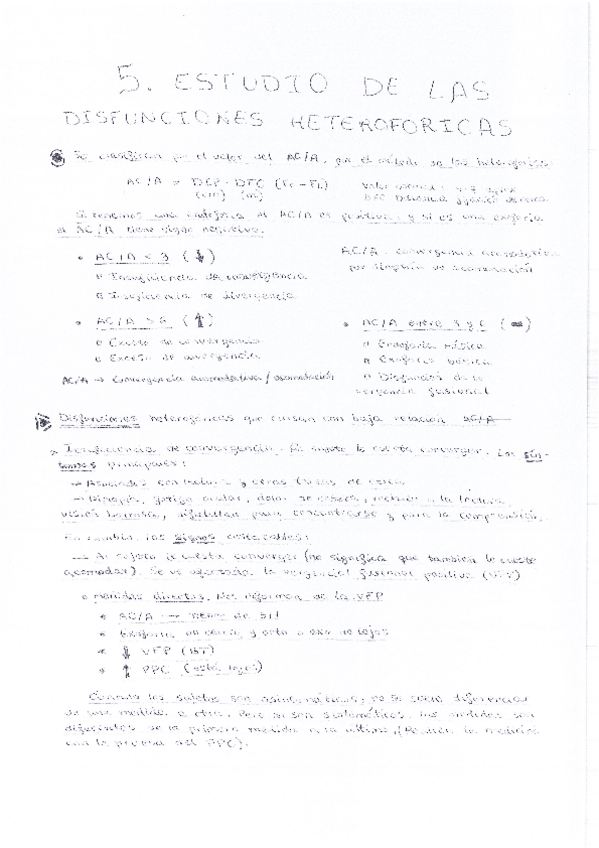 5. ESTUDIO DE LAS
DISFUNCIONES HETEROFORICAS
Se clasifican por el valor del AC/A, por el método de las heteroforias.
AC/A = DIP + DTC (Fc - FL)
(cm) (m)
Si tenemos una endoforia el AC/A es positiva, y si es una exoforia
el AC/A tiene signo negativo.
• AC/A < 3 (↓)
Insuficiencia de convergencia
Insuficiencia de divergencia
AC/A: convergencia acomodativa
por estímulo de acomodación
• AC/A > 6 (↑)
Exceso de convergencia
Exceso de divergencia
AC/A → Convergencia acomodativa / acomodación
• AC/A entre 3 y 6 (=)
Endoforia básica
Exoforia básica
Disfunción de la
vergencia fusional
Disfunciones heterofóricas que cursan con baja relación AC/A
> Insuficiencia de convergencia. Al sujeto le cuesta converger. Los sín-
tomas principales:
→ Asociados con lectura y otras tareas de cerca.
→ Diplopía, fatiga ocular, dolor de cabeza, rechazo a la lectura,
visión borrosa, dificultad para concentrarse y para la comprensión.
En cambio los signos destacables:
→ Al sujeto le cuesta converger (no significa que también le cueste
acomodar). Se ve afectada la vergencia fusional positiva (VFP)
Medidas directas. Nos informan de la VFP
AC/A → menor de 3/1
Exoforia de cerca, y orto o exo de lejos
↓ VFP (BT)
↑ PPC (está lejos)
Cuando los sujetos son asintomáticos, no se suele diferenciar
de una medida a otra. Pero si son sintomáticos, las medidas son
diferentes de la primera medida a la última.
con la prueba del PPC).